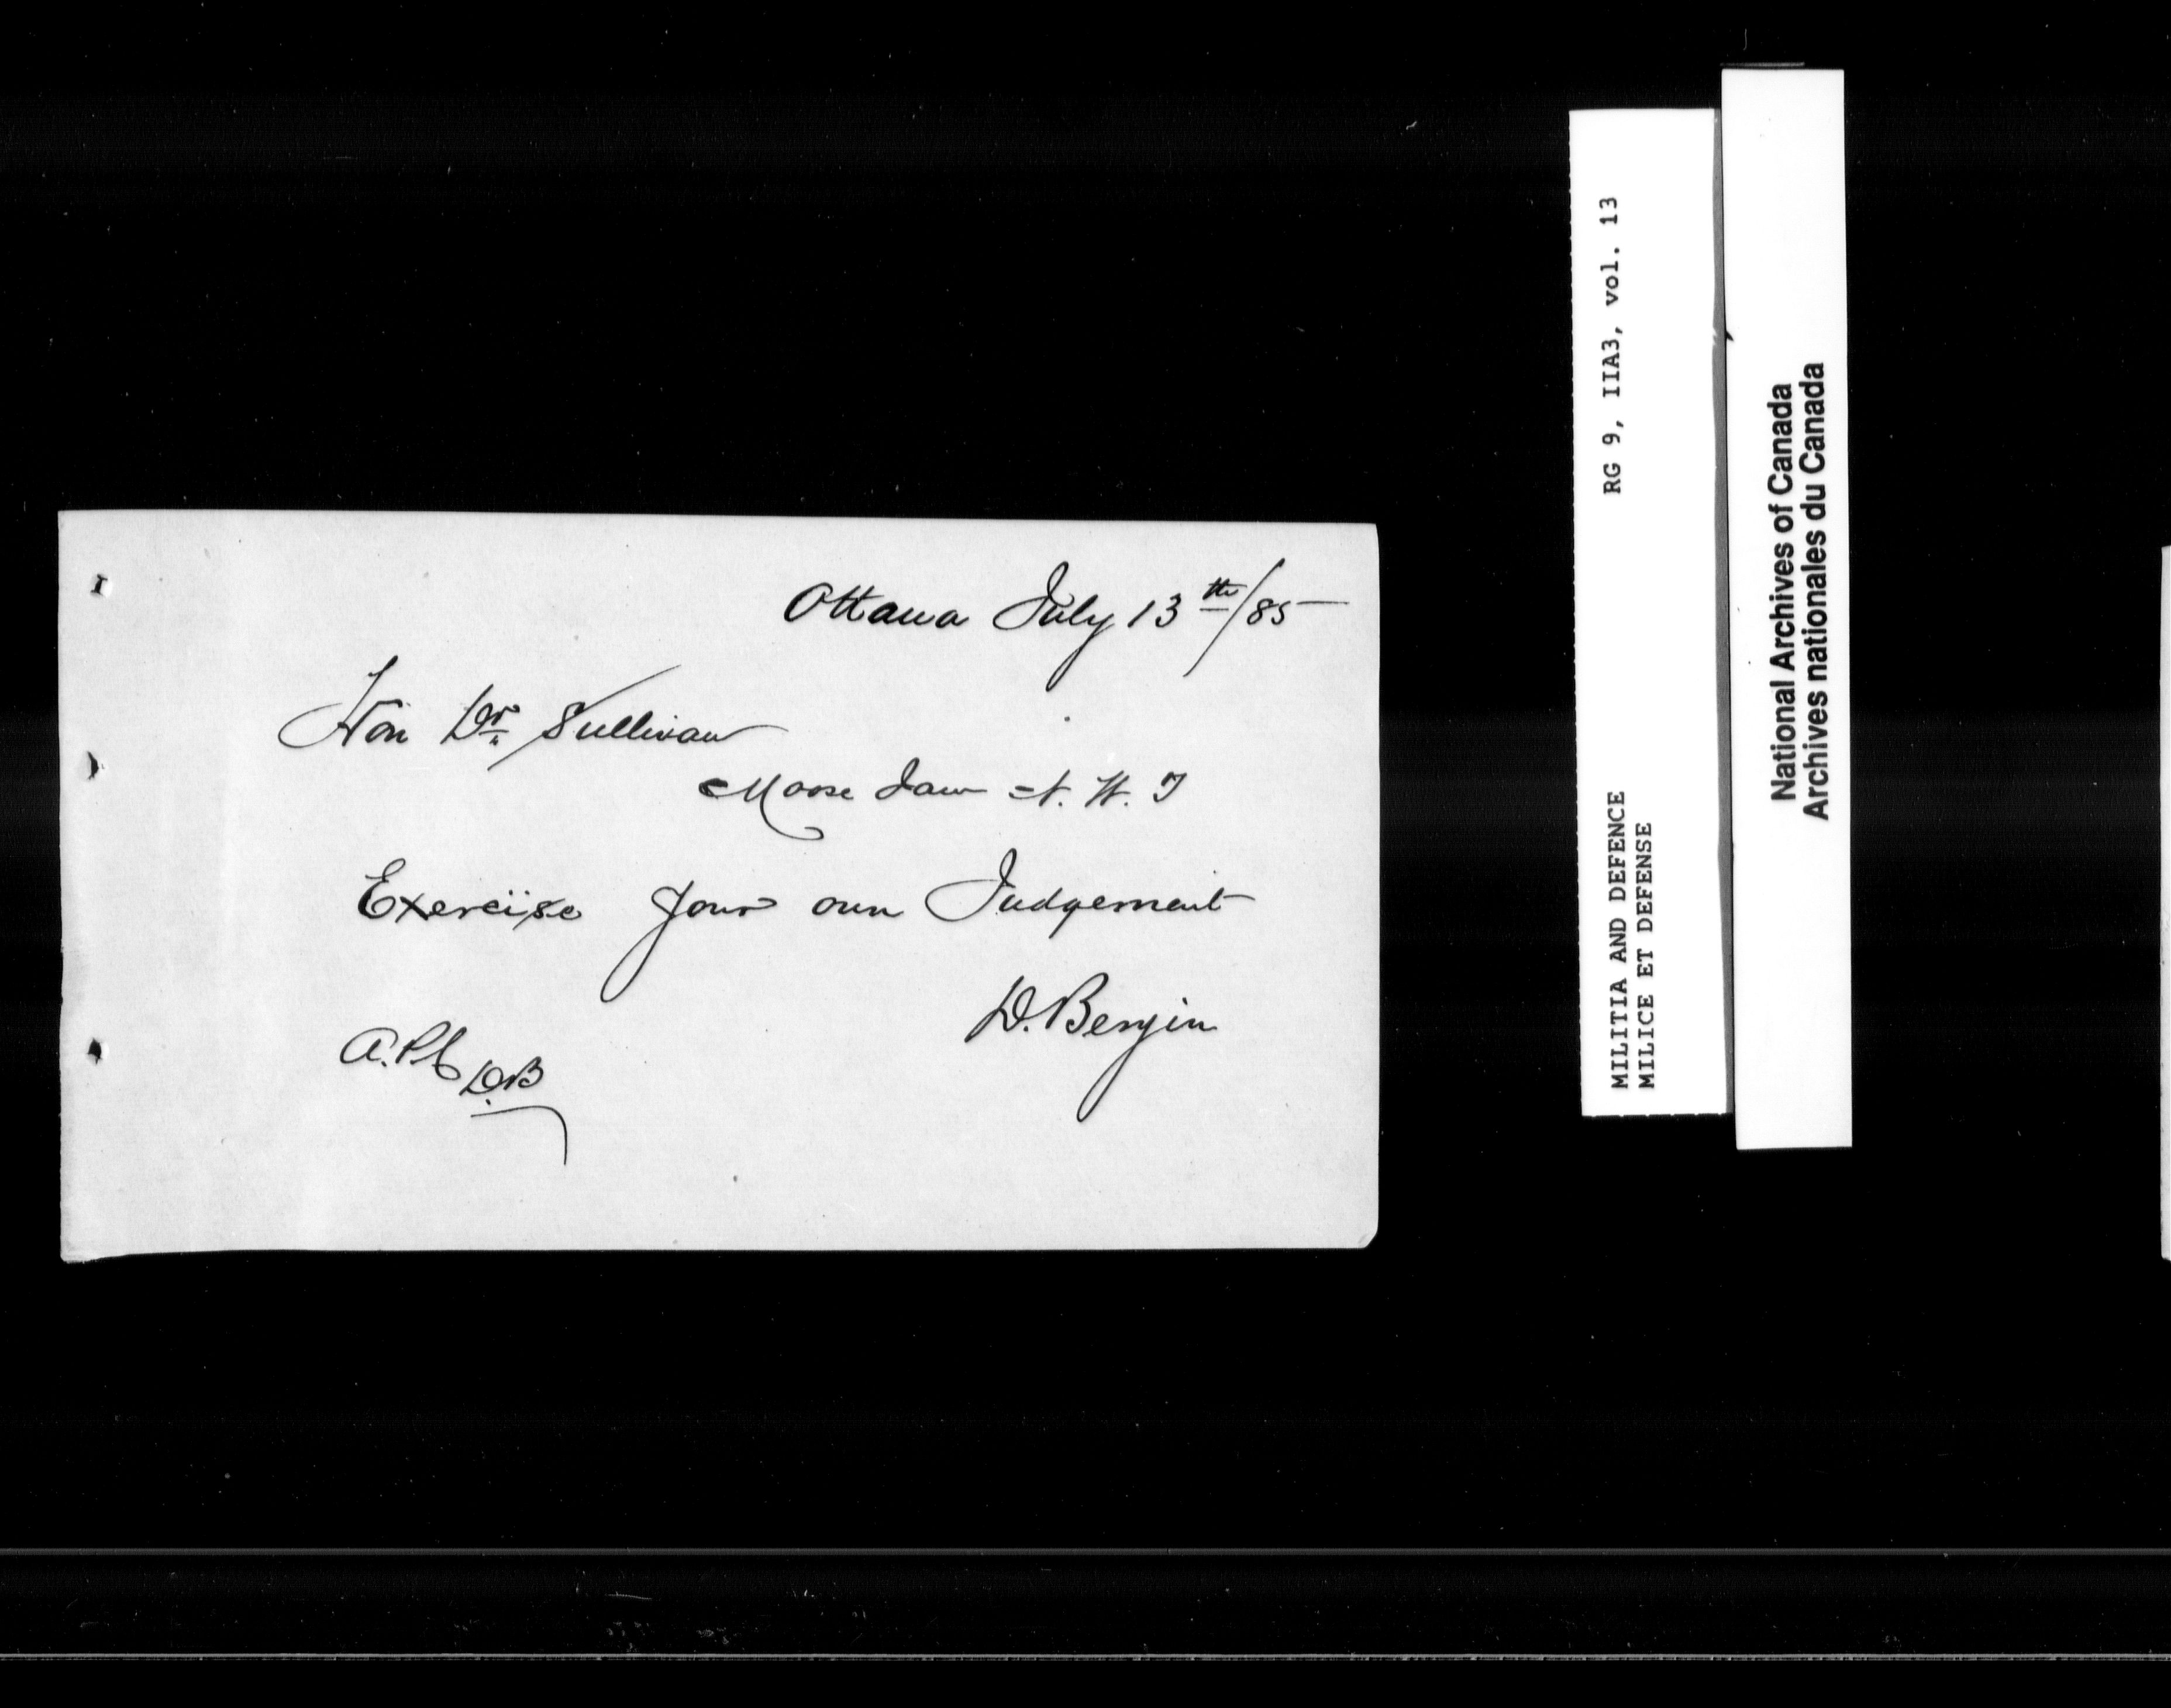 Ottawa July 13th/85
Hon Dr Sullivan
Moose Jaw N. W. T
Exercise your own Judgement
D. Bergin
D.B
RG 9, IIA3, vol. 13
MILITIA AND DEFENCE
MILICE ET DEFENSE
National Archives of Canada
Archives nationales du Canada